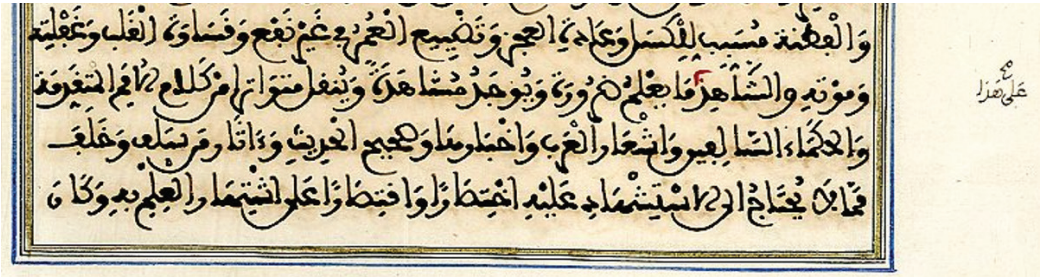 وَالْفِطْنَة مُسَبِّب لِلْكَسَل وَعَادَةِ العجز وَتَضْيِيع الْعُمُر فِي غَيْرِ نَفْع وَقَسَاوَة القَلْب وَغَفْلَتِه
وَمَوْتِه والشَّاهِدُ مَا يعْلَمُ ضَرُورَة وَيُوجَدُ مُشَاهَدَةً وَيُنقل متوَاتِرا مِن كَلَام الأمَم المتقَدِّمَة
وَالحكمَاء السَّالِفِين وَاشْعَار العَرَب وَاخْبَارِهَا وَصَحِيح الحَدِيثِ وَءَاثَار مَن سَلَف وَخَلَف
مِمَّا لَا يُحْتَاجُ الى الاسْتِشْهَادِ عَلَيْهِ اخْتِصَارًا وَاقْتِصَارًا عَلَى اشْتِهَار العِلْم بِهِ وَكَان
صح
عَلَى هَذَا